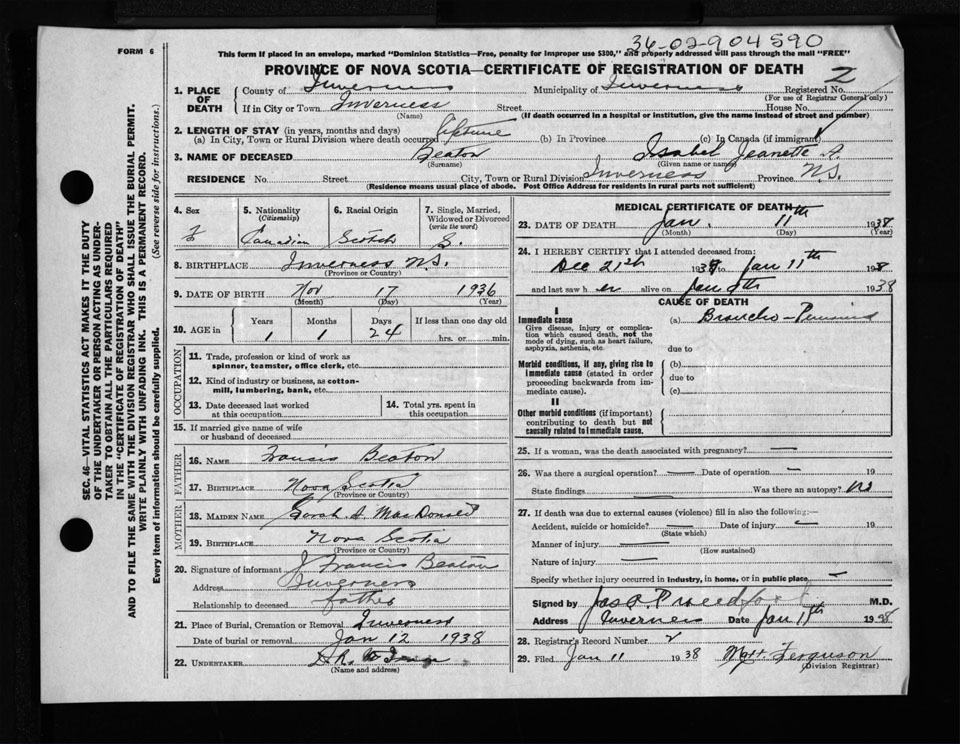 36-02-904590
FORM 6
This form if placed in an envelope, marked "Dominion Statistics—Free, penalty for improper use $300," and properly addressed will pass through the mail "FREE"
PROVINCE OF NOVA SCOTIA—CERTIFICATE OF REGISTRATION OF DEATH
1. PLACE OF DEATH
County of Inverness Municipality of Inverness Registered No. 2
(For use of Registrar General only)
If in City or Town Inverness Street House No.
(Name) (If death occurred in a hospital or institution, give the name instead of street and number)
2. LENGTH OF STAY (in years, months and days)
(a) In City, Town or Rural Division where death occurred lifetime (b) In Province (c) In Canada (if immigrant)
3. NAME OF DECEASED Beaton Isabel Jeanette A.
(Surname) (Given name or names)
RESIDENCE No. Street City, Town or Rural Division Inverness Province N.S.
(Residence means usual place of abode. Post Office Address for residents in rural parts not sufficient)
4. Sex 5. Nationality (Citizenship) 6. Racial Origin 7. Single, Married, Widowed or Divorced (write the word)
F Canadian Scotch S.
8. BIRTHPLACE Inverness N.S.
(Province or Country)
9. DATE OF BIRTH Nov 17 1936
(Month) (Day) (Year)
10. AGE in Years Months Days If less than one day old
1 1 24 hrs. or min.
OCCUPATION
11. Trade, profession or kind of work as spinner, teamster, office clerk, etc.
12. Kind of industry or business, as cotton-mill, lumbering, bank, etc.
13. Date deceased last worked at this occupation
14. Total yrs. spent in this occupation
15. If married give name of wife or husband of deceased
FATHER
16. NAME Francis Beaton
17. BIRTHPLACE Nova Scotia
(Province or Country)
MOTHER
18. MAIDEN NAME Sarah A. MacDonald
19. BIRTHPLACE Nova Scotia
(Province or Country)
20. Signature of informant J Francis Beaton
Address Inverness
Relationship to deceased father
21. Place of Burial, Cremation or Removal Inverness
Date of burial or removal Jan 12 1938
22. UNDERTAKER
(Name and address)
MEDICAL CERTIFICATE OF DEATH
23. DATE OF DEATH Jan. 11th 1938
(Month) (Day) (Year)
24. I HEREBY CERTIFY that I attended deceased from:
Dec 21st 193 to Jan 11th 1938
and last saw her alive on Jan th 1938
CAUSE OF DEATH
I
Immediate cause (a) Broncho-Pneumonia
Give disease, injury or complication which caused death, not the mode of dying, such as heart failure, asphyxia, asthenia, etc.
due to
Morbid conditions, if any, giving rise to immediate cause (stated in order proceeding backwards from immediate cause).
(b)
due to
(c)
II
Other morbid conditions (if important) contributing to death but not causally related to immediate cause.
25. If a woman, was the death associated with pregnancy? —
26. Was there a surgical operation? — Date of operation — 19
State findings — Was there an autopsy? No
27. If death was due to external causes (violence) fill in also the following:—
Accident, suicide or homicide? — Date of injury — 19
(State which)
Manner of injury —
(How sustained)
Nature of injury —
Specify whether injury occurred in industry, in home, or in public place. —
Signed by Jas A. Proudfoot M.D.
Address Inverness Date Jan 11th 1938
28. Registrar's Record Number 2
29. Filed Jan 11 1938 Matt. Ferguson
(Division Registrar)
SEC. 46—VITAL STATISTICS ACT MAKES IT THE DUTY
OF THE UNDERTAKER OR PERSON ACTING AS UNDER-
TAKER TO OBTAIN ALL THE PARTICULARS REQUIRED
IN THE "CERTIFICATE OF REGISTRATION OF DEATH"
AND TO FILE THE SAME WITH THE DIVISION REGISTRAR WHO SHALL ISSUE THE BURIAL PERMIT.
WRITE PLAINLY WITH UNFADING INK. THIS IS A PERMANENT RECORD.
Every item of information should be carefully supplied. (See reverse side for instructions.)